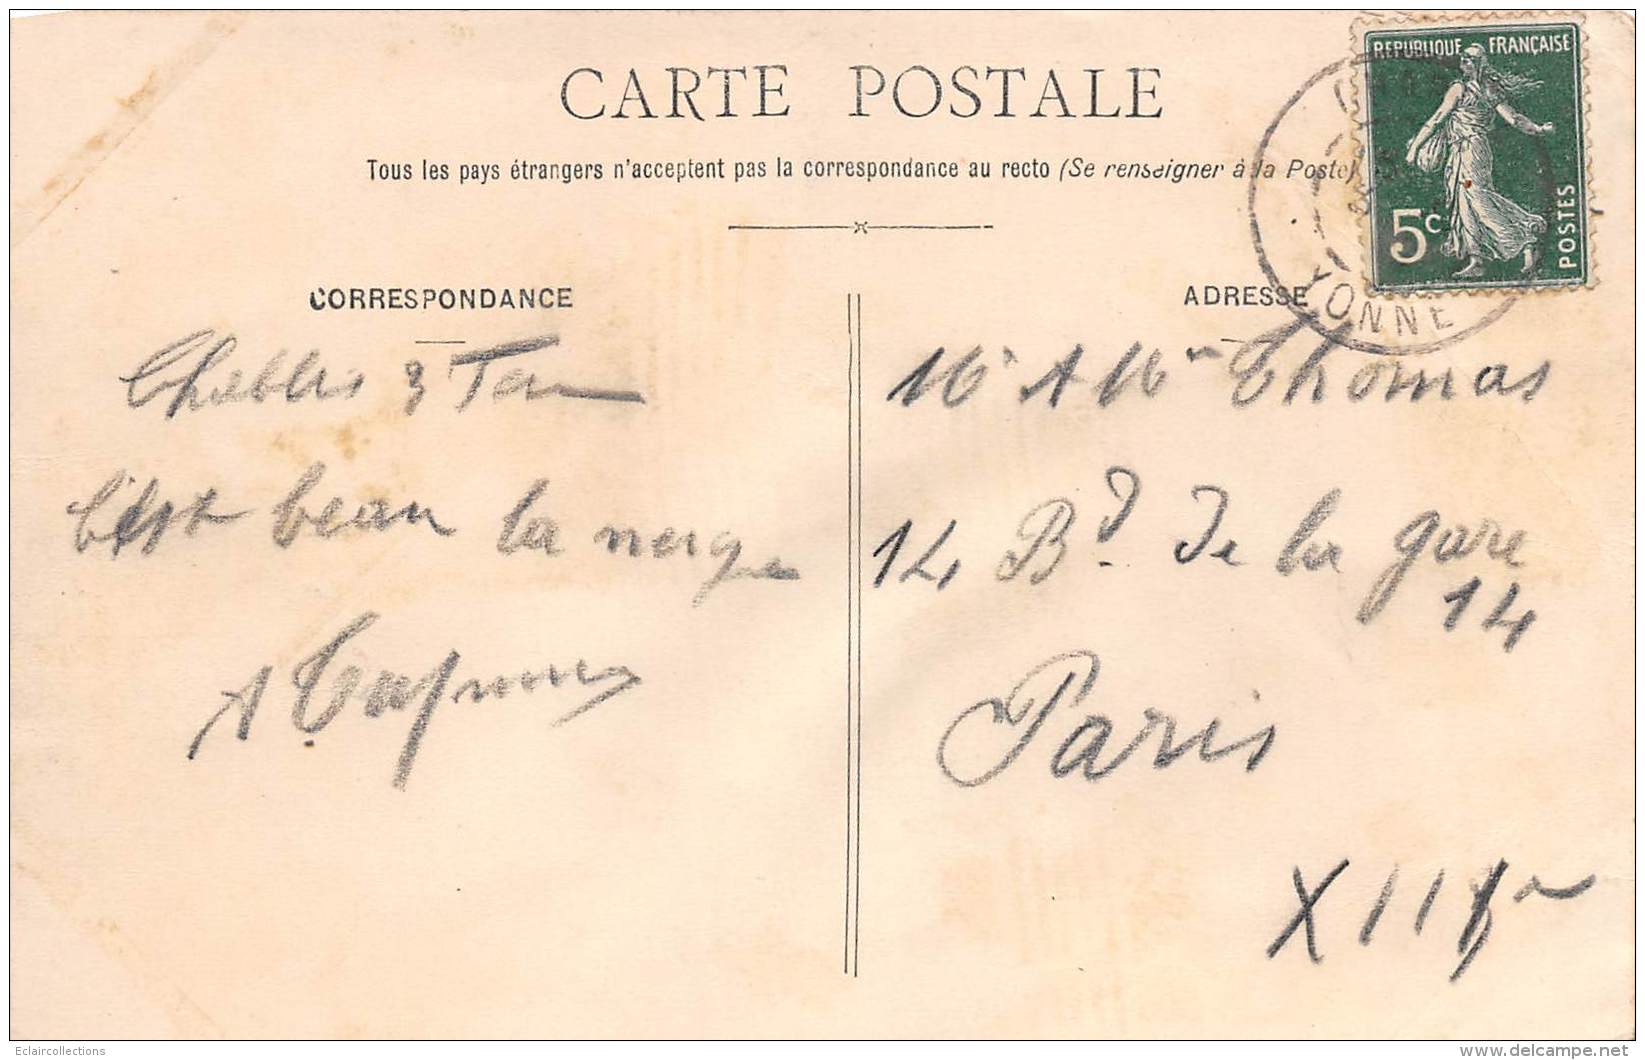 CARTE POSTALE
Tous les pays étrangers n'acceptent pas la correspondance au recto (Se renseigner à la Poste)
REPUBLIQUE FRANÇAISE
5c
POSTES
YONNE
CORRESPONDANCE
Chablis 3
C'est beau la neige
A
ADRESSE
Thomas
14 Bd. de la gare
14
Paris
Eclaircollections
delcampe.net